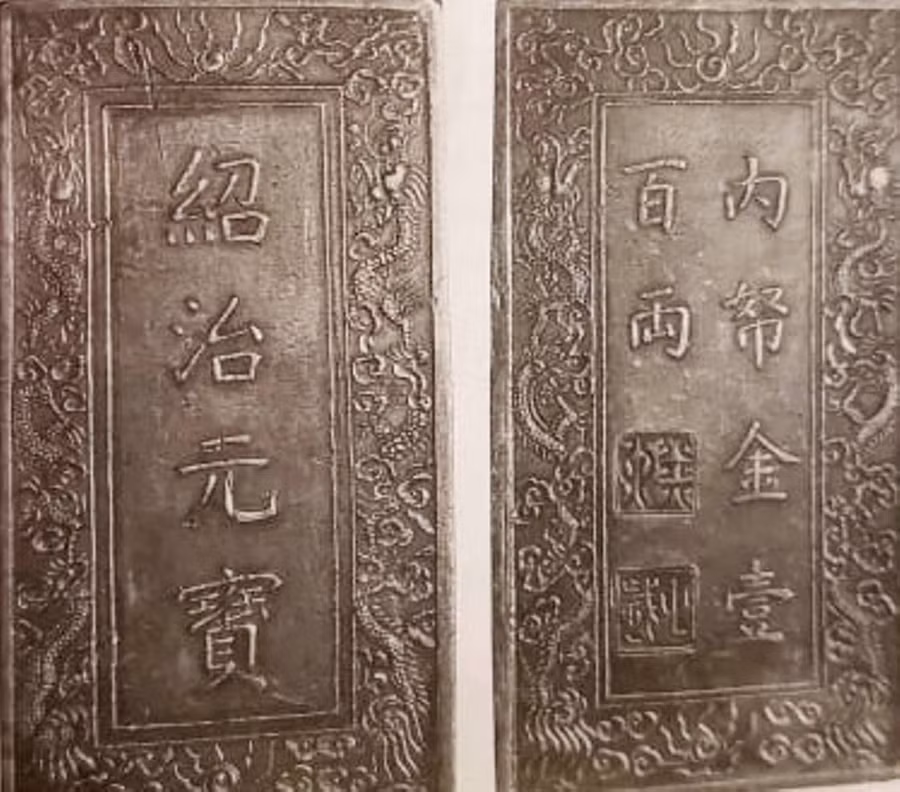 紹治元寶
內帑金壹
百兩